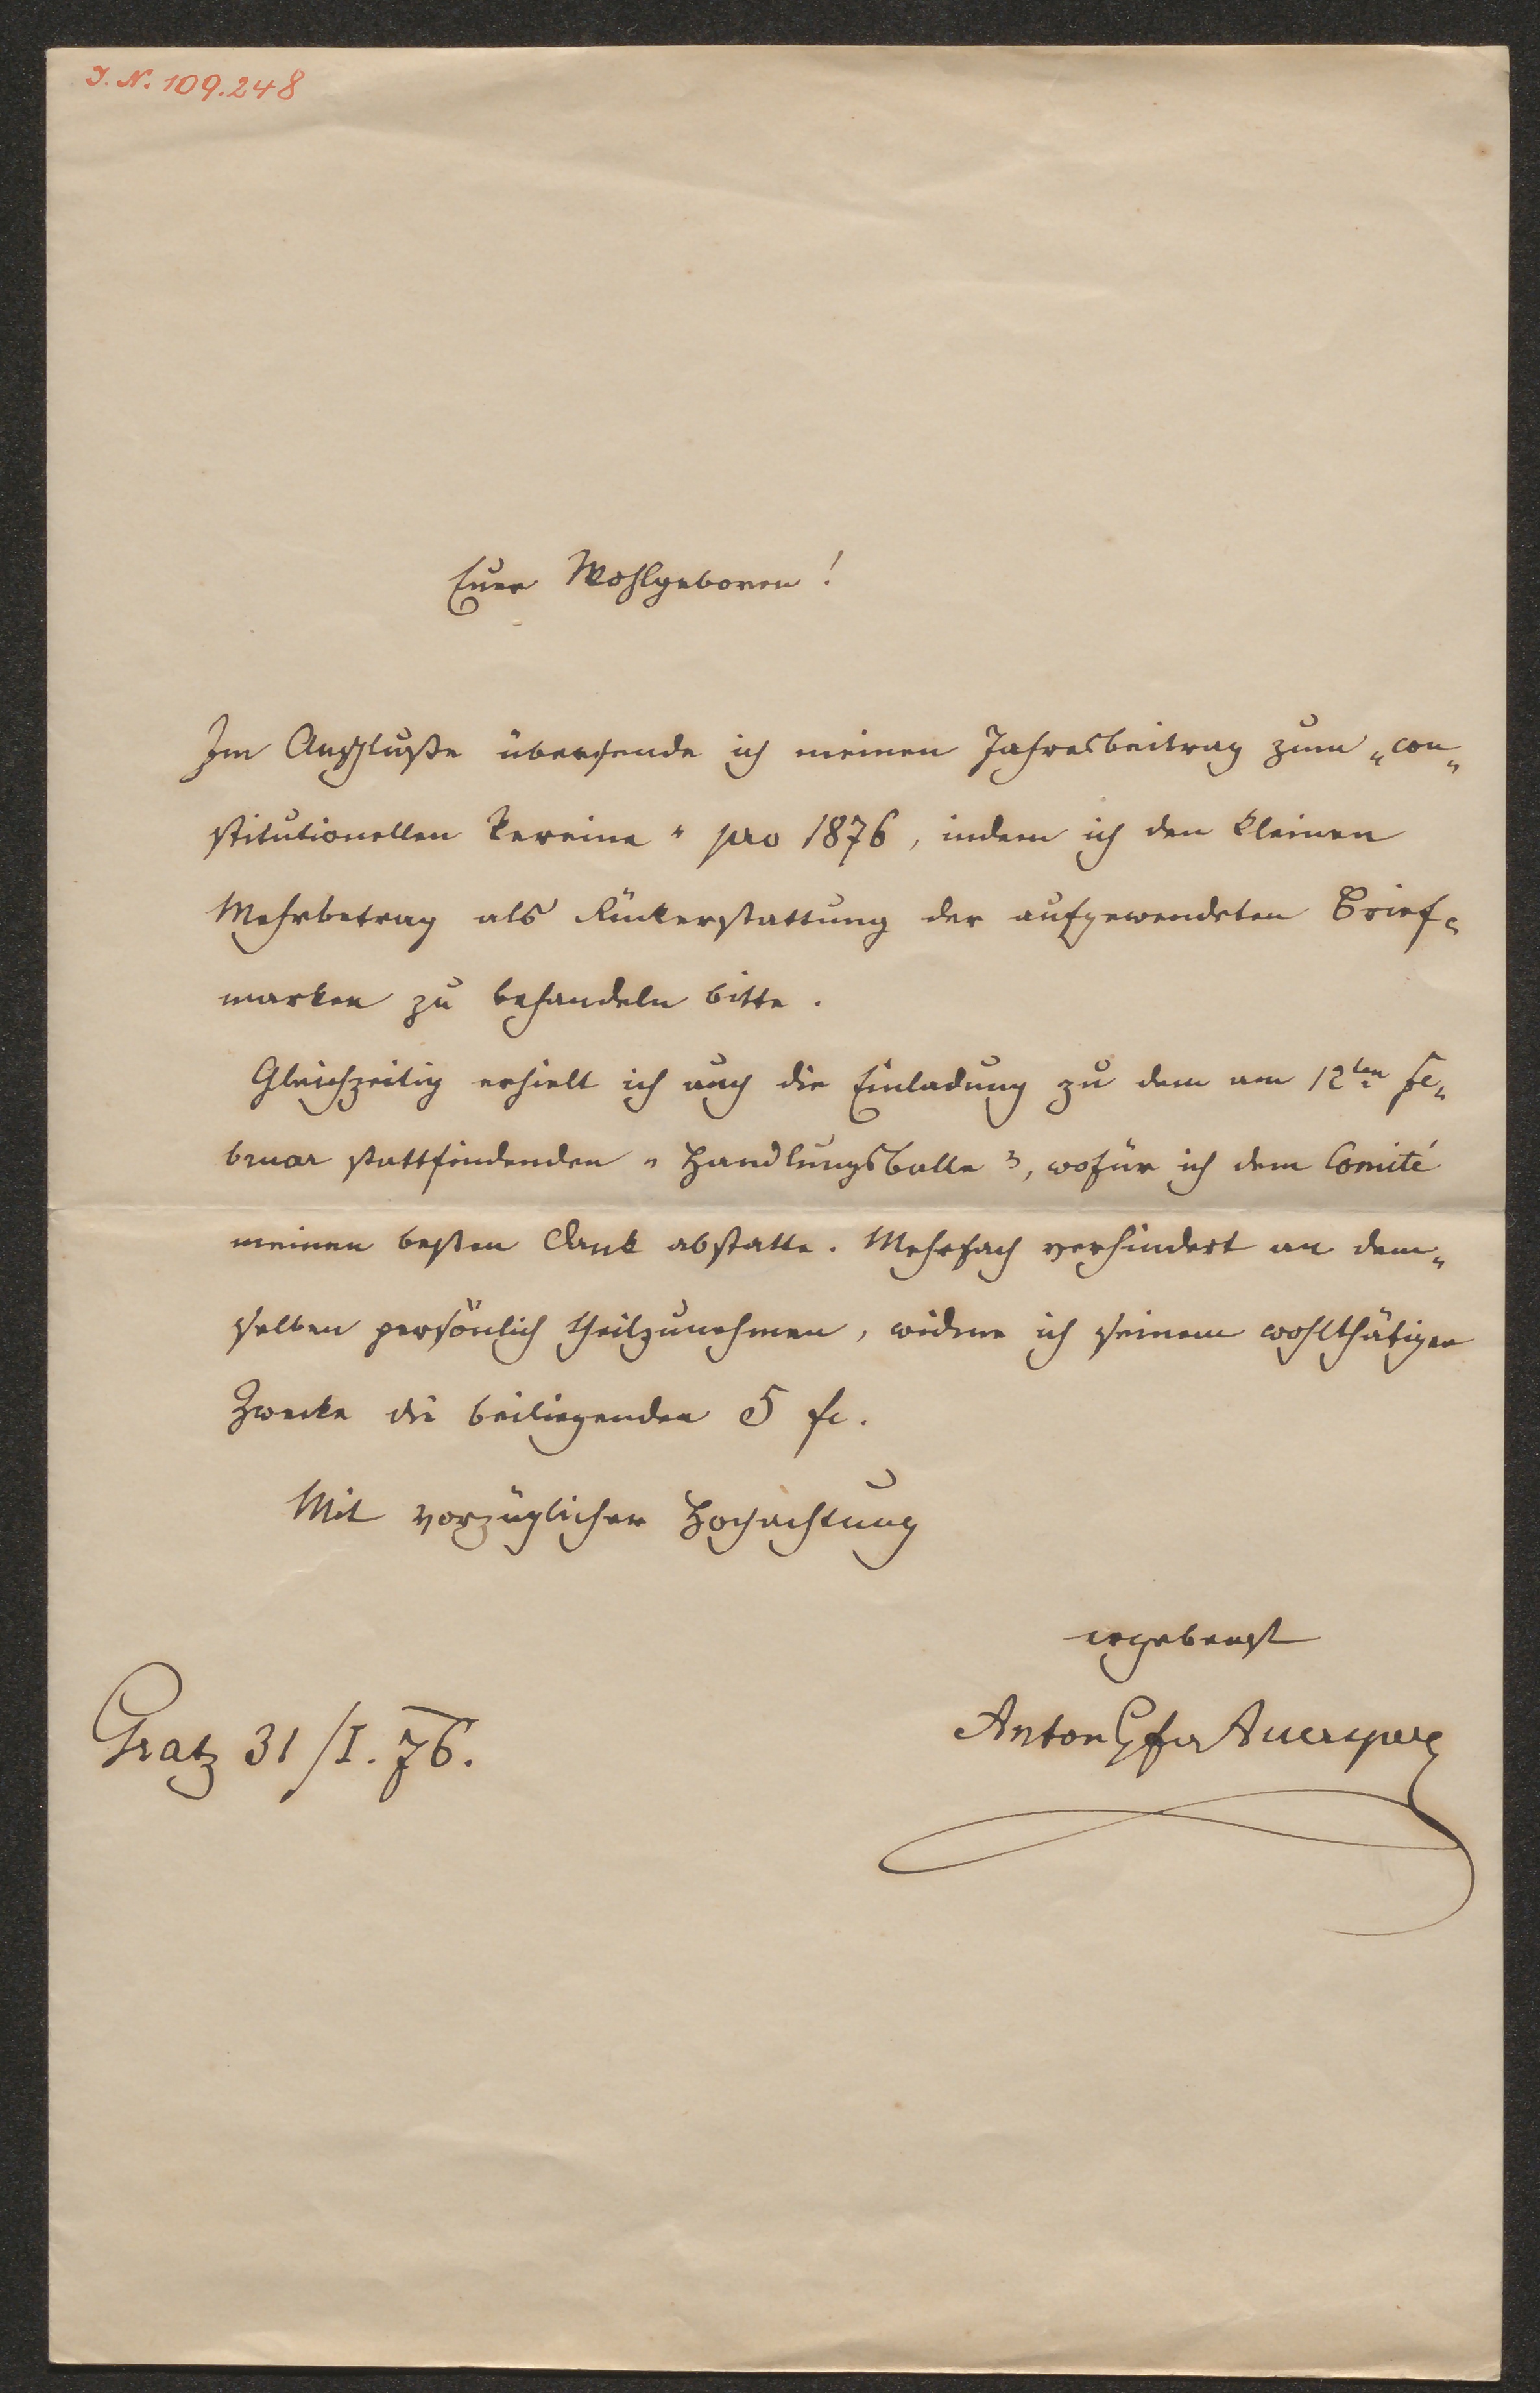 I. N. 109.248
Euer Wohlgeboren!
Im Anschluße übersende ich meinen Jahresbeitrag zum „con„
stitutionellen Vereine" pro 1876, indem ich den kleinen
Mehrbetrag als Rückerstattung der aufgewendeten Brief=
marken zu behandeln bitte.
Gleichzeitig erhielt ich auch die Einladung zu dem am 12ten Fe„
bruar stattfindenden „Handlungsballe", wofür ich dem Comité
meinen besten Dank abstatte. Mehrfach verhindert an dem„
selben persönlich theilzunehmen, widme ich seinem wohlthätigen
Zwecke die beiliegenden 5 fl.
Mit vorzüglicher Hochachtung
ergebenst
Anton Gf Auersperg
Gratz 31/I. 76.